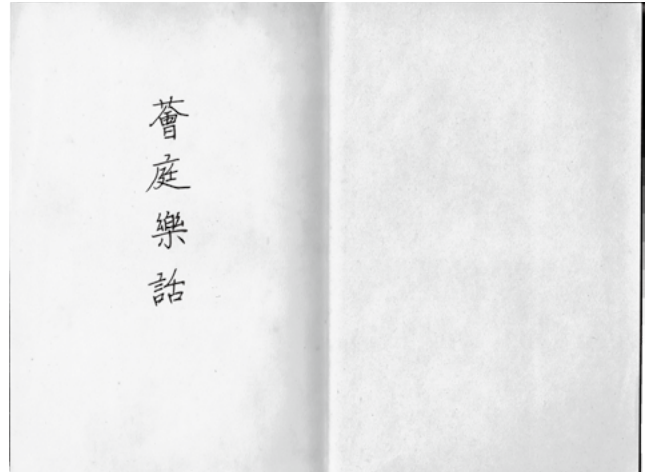 薈庭樂話